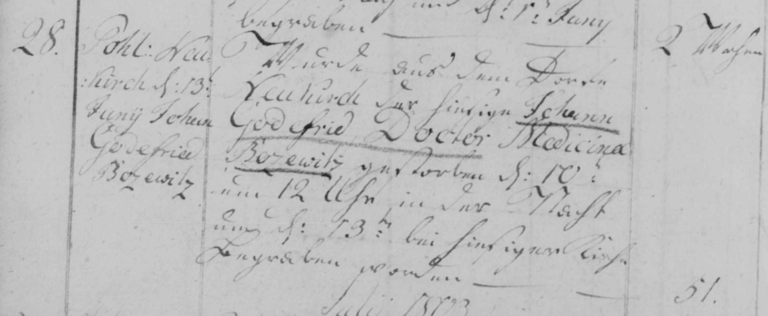 begraben d: 1t Juny
28.
Pohl: Neu
kirch d: 13t
Juny Johan
Godefried
Bozewitz
Wurde aus dem Dorfe
Neukirch der hiesige Johann
Godefried Doctor Medicina
Bozewitz gestorben d: 10t
um 12 Uhr in der Nacht
und d: 13ten bei hiesiger Kirche
begraben worden
2 Wochen
51.
July 1803